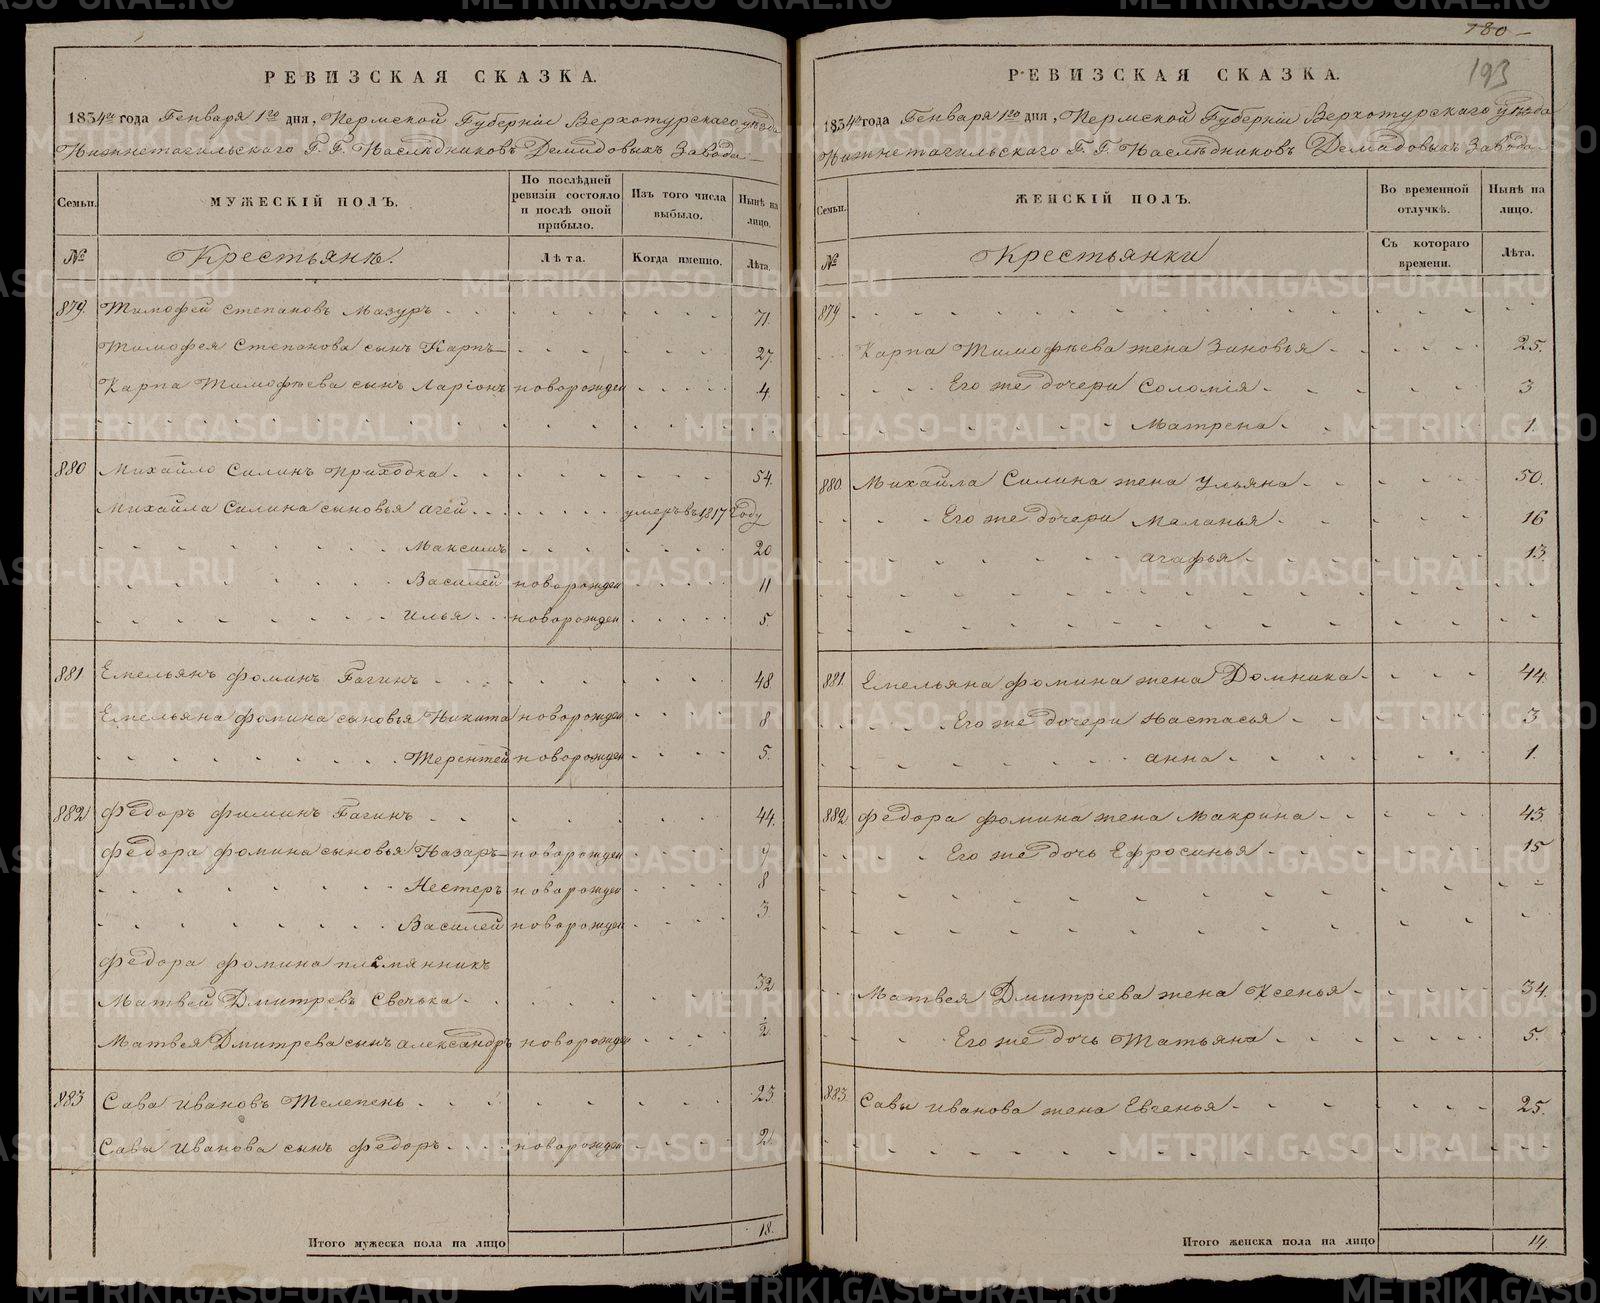 РЕВИЗСКАЯ СКАЗКА.
1834го года Генваря 1го дня, Пермской Губерніи Верхотурскаго уѣзда
Нижнетагильскаго Г. Г. Наслѣдниковъ Демидовыхъ Завода
Семьи.
МУЖЕСКІЙ ПОЛЪ.
По послѣдней ревизіи состояло и послѣ оной прибыло.
Изъ того числа выбыло.
Нынѣ на лицо.
№
Крестьянѣ.
Лѣта.
Когда именно.
Лѣта.
879. Тимофей Степановъ Мазуръ 71.
Тимофея Степанова сынъ Карпъ 27.
Карпа Тимофѣева сынъ Ларіонъ новорожден 4.
880 Михайло Силинъ Приходка 54.
Михайла Силина сыновья Агей умеръ въ 1817 году
Максимъ 20
Василей новорожден 11
Илья новорожден 5.
881 Емельянъ Фоминъ Гагинъ 48.
Емельяна Фомина сыновья Никита новорожден 8
Терентей новорожден 5.
882 Федоръ Фиминъ Гагинъ 44.
Федора Фомина сыновья Назаръ новорожден 9
Нестеръ новорожден 8
Василей новорожден 3
Федора Фомина племянникъ
Матвей Дмитревъ Свечька 32
Матвея Дмитрева сынъ Александръ новорожден 1/2
883 Сава Ивановъ Телепень 23
Савы Иванова сынъ Федоръ новорожден 2.
Итого мужеска пола на лицо 18.
780
193
РЕВИЗСКАЯ СКАЗКА.
1834го года Генваря 1го дня, Пермской Губерніи Верхотурскаго уѣзда
Нижнетагильскаго Г. Г. Наслѣдниковъ Демидовыхъ Завода
Семьи.
ЖЕНСКІЙ ПОЛЪ.
Во временной отлучкѣ.
Нынѣ на лицо.
№
Крестьянки
Съ котораго времени.
Лѣта.
879
Карпа Тимофѣева жена Зиновья 25.
Его же дочери Соломія 3
Матрена 1.
880. Михайла Силина жена Ульяна 50.
Его же дочери Маланья 16
Агафья 13.
881. Емельяна Фомина жена Домника 44.
Его же дочери Настасья 3
Анна 1.
882 Федора Фомина жена Макрина 43.
Его же дочь Ефросинья 15
Матвея Дмитріева жена Ксенья 34.
Его же дочь Татьяна 5.
883. Савы Иванова жена Евгенья 25.
Итого женска пола на лицо 14
METRIKI.GASO-URAL.RU